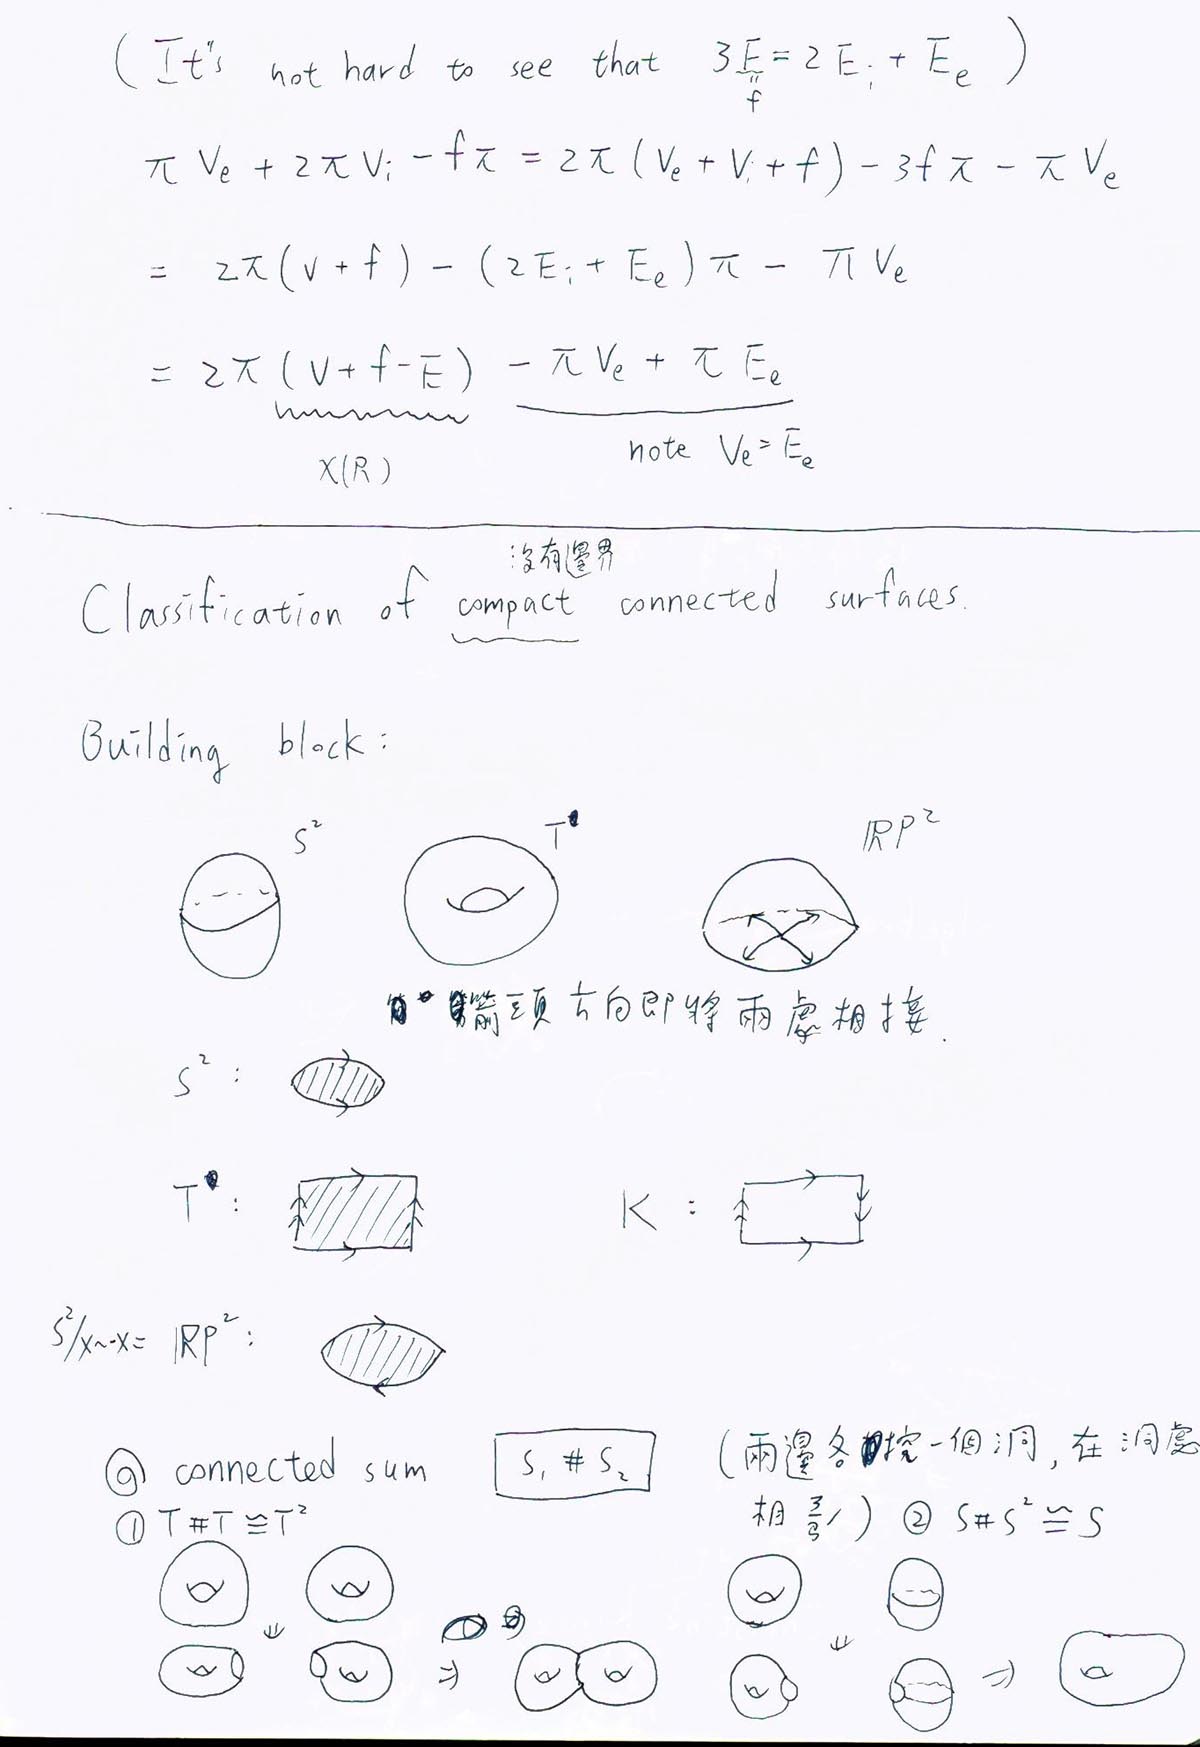 (It's not hard to see that 3E = 2E_i + E_e)
"
f
πV_e + 2πV_i - fπ = 2π(V_e + V_i + f) - 3fπ - πV_e
= 2π(V + f) - (2E_i + E_e)π - πV_e
= 2π(V + f - E) - πV_e + πE_e
χ(R)
note V_e = E_e
沒有邊界
Classification of compact connected surfaces.
Building block:
S²
T
RP²
箭頭方向即將兩處相接.
S²:
T:
K:
S²/x~-x = RP²:
connected sum
S₁ # S₂
(兩邊各挖一個洞, 在洞處
相黏)
① T # T ≅ T²
② S # S² ≅ S
⇓
⇓
⇒
⇒